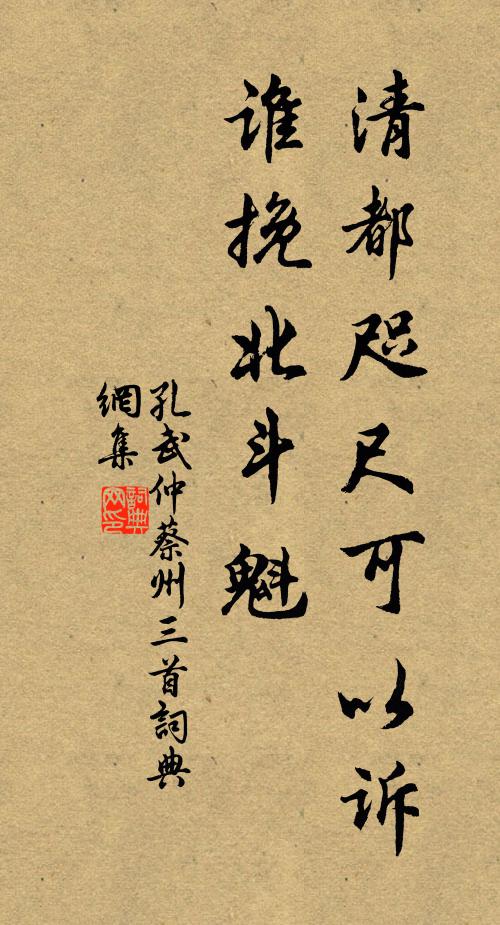 清都咫尺可以诉
谁挽北斗魁
孔武仲蔡州三首詞典
網集
詞典
网印